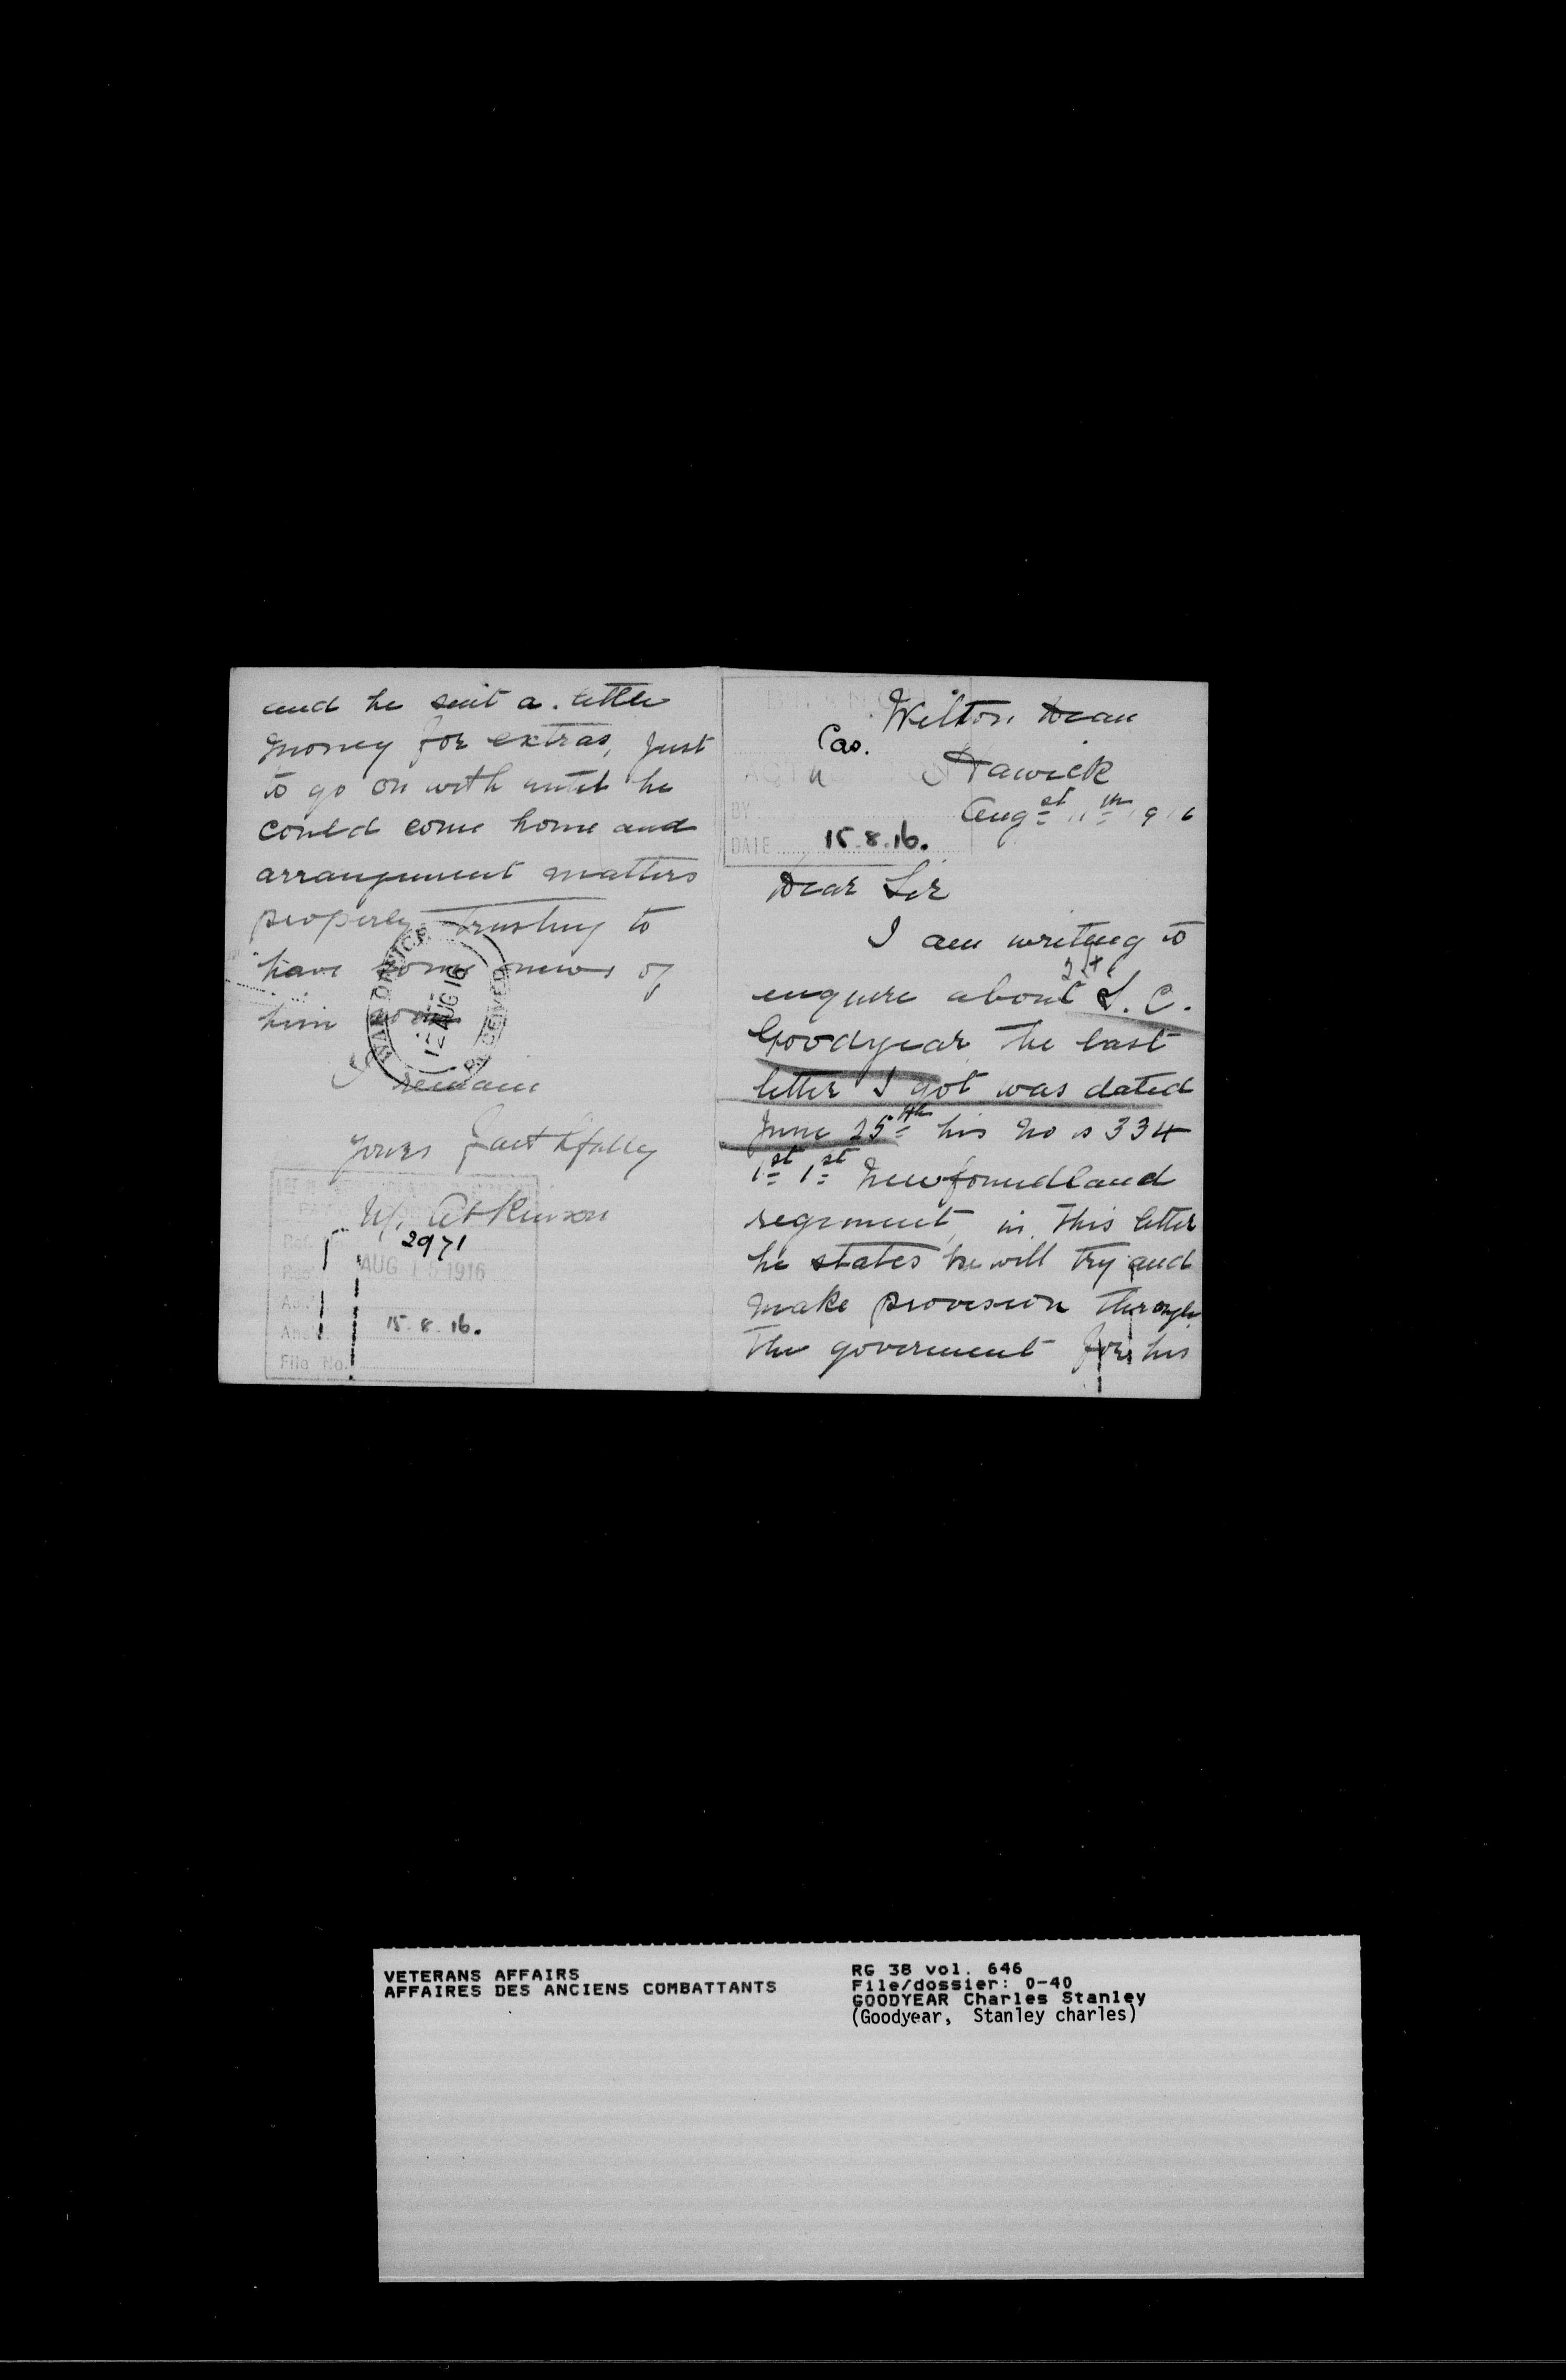 Wilton Dean
Hawick
Augst 11th 1916
Cas.
BY
DATE 15.8.16.
Dear Sir
I am writing to
enquire about Lt S. C.
Goodyear, the last
letter I got was dated
June 25th his No is 334
1st 1st Newfoundland
regiment, in this letter
he states he will try and
make provision through
the goverment for his
and he sent a little
money for extras, just
to go on with until he
could come home and
arrangement matters
properly. Trusting to
have some news of
him soon
I remain
yours faithfully
M. Atkinson
WAR OFFICE
12 AUG 16
RECEIVED
2971
AUG 15 1916
15.8.16.
File No.
VETERANS AFFAIRS
AFFAIRES DES ANCIENS COMBATTANTS
RG 38 vol. 646
File/dossier: 0-40
GOODYEAR Charles Stanley
(Goodyear, Stanley charles)